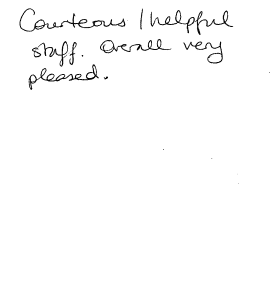 Courteous / helpful
staff. Overall very
pleased.